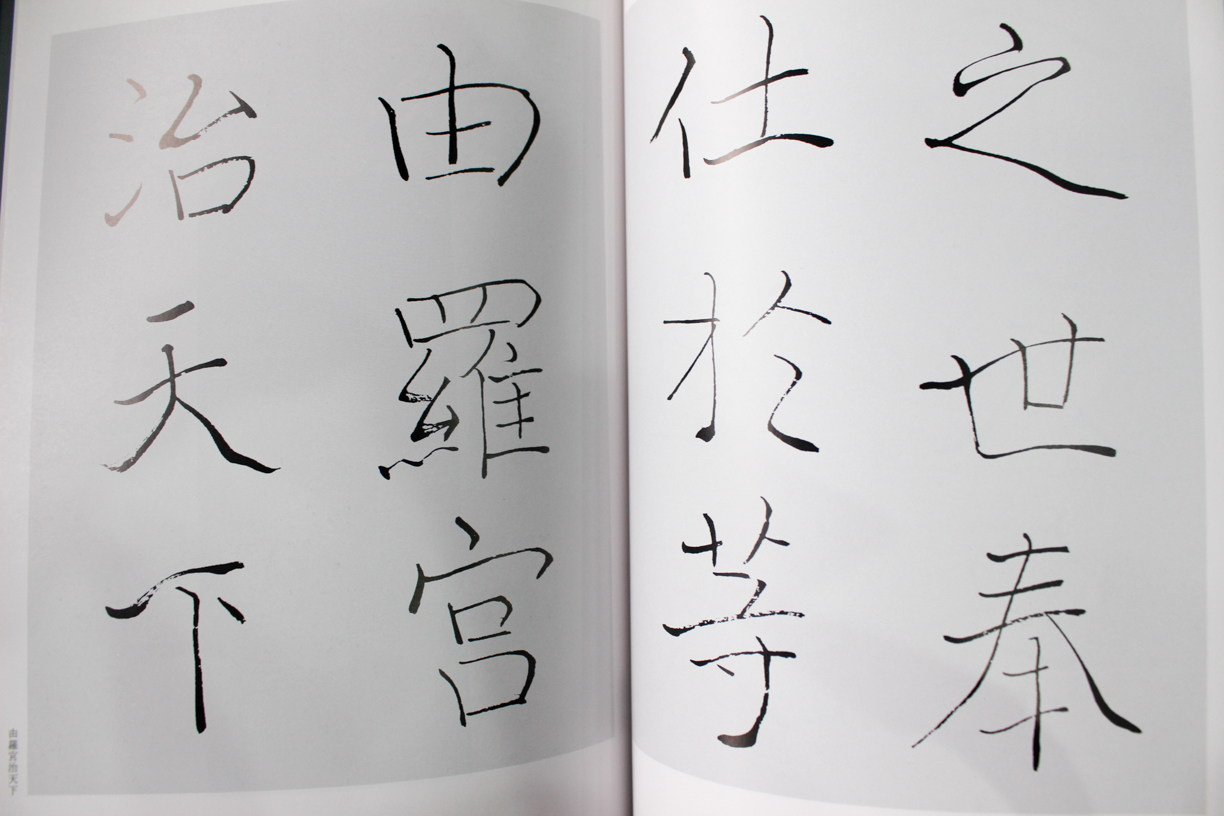 之世奉
仕於等
由羅宮
治天下
由羅宮治天下